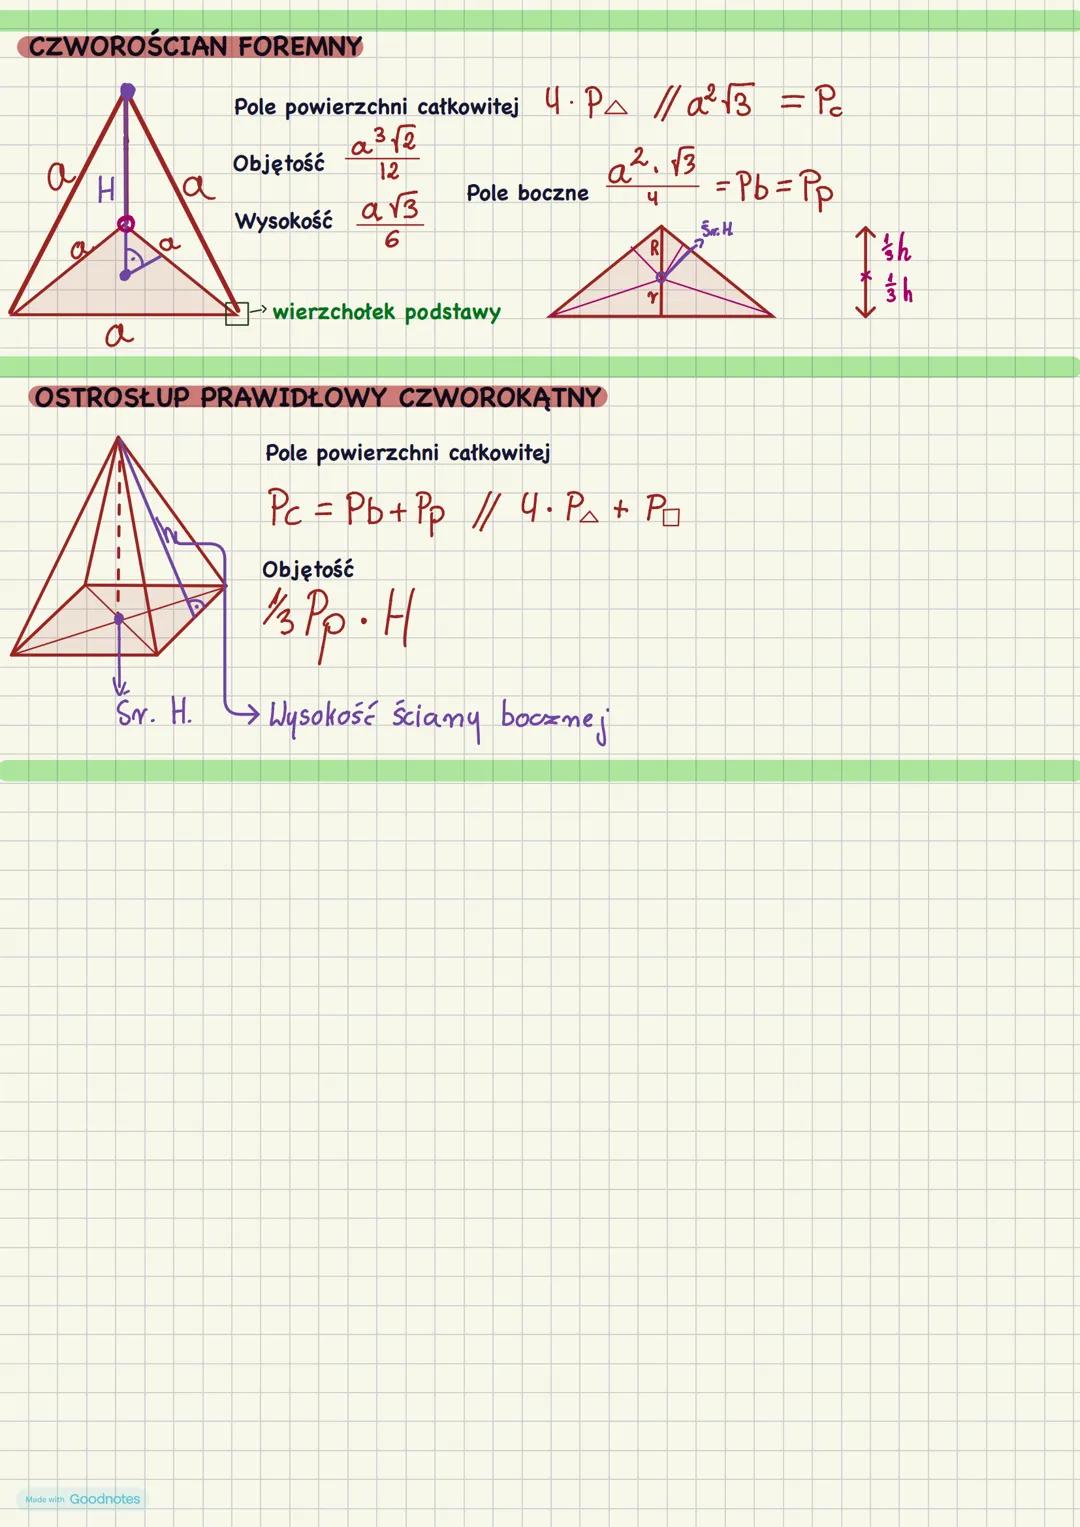 CZWOROŚCIAN FOREMNY
Pole powierzchni całkowitej 4 · P△ // a²√3 = Pc
Objętość a³√2/12
Pole boczne a²·√3/4 = Pb = Pp
Wysokość a√3/6
a
H
a
a
a
a
wierzchołek podstawy
R
Śr. H
r
⅓h
⅓h
OSTROSŁUP PRAWIDŁOWY CZWOROKĄTNY
Pole powierzchni całkowitej
Pc = Pb + Pp // 4 · P△ + P□
h
Objętość
1/3 Pp · H
Śr. H.
Wysokość ściany bocznej
Made with Goodnotes